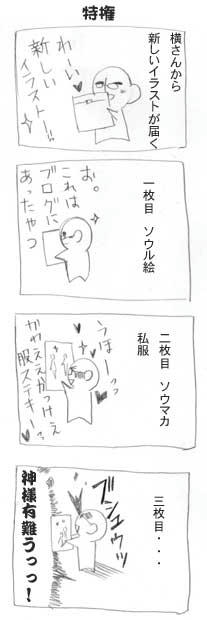 特権
横さんから
新しいイラストが届く
わーい
新しい
イラストー!!
一枚目 ソウル絵
お。
これは
ブログに
あったやつ
二枚目 ソウマカ
私服
うほーっっ
かわええかっけえ
服ステキーっ
三枚目・・・
ブシュウッ
神様有難うっっ!